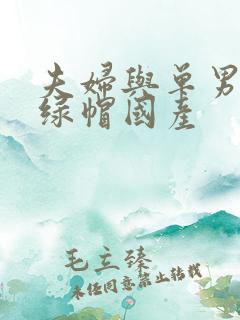 夫婦與单男
绿帽國産
毛立臻
未经同意禁止转载